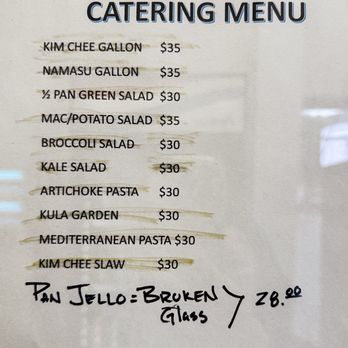 CATERING MENU
KIM CHEE GALLON $35
NAMASU GALLON $35
½ PAN GREEN SALAD $30
MAC/POTATO SALAD $35
BROCCOLI SALAD $30
KALE SALAD $30
ARTICHOKE PASTA $30
KULA GARDEN $30
MEDITERRANEAN PASTA $30
KIM CHEE SLAW $30
PAN JELLO = BROKEN
Glass > 28.00